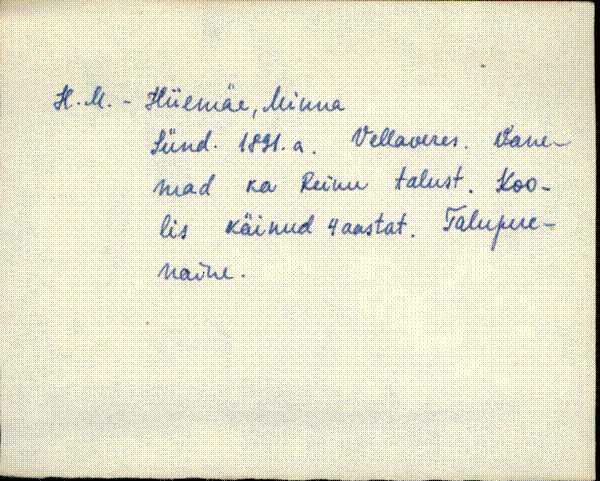 H. M. - Hüemäe, Minna
Sünd. 1891. a. Vellaveres. Vane-
mad ka Reinu talust. Koo-
lis käinud 4 aastat. Talupere-
naine.